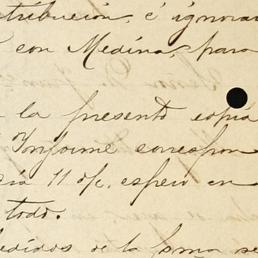 tribución, é ignorar
con Medina, para
la presente copia
Conforme correspon
11 de, espero en
todo.
pedidos de la forma se